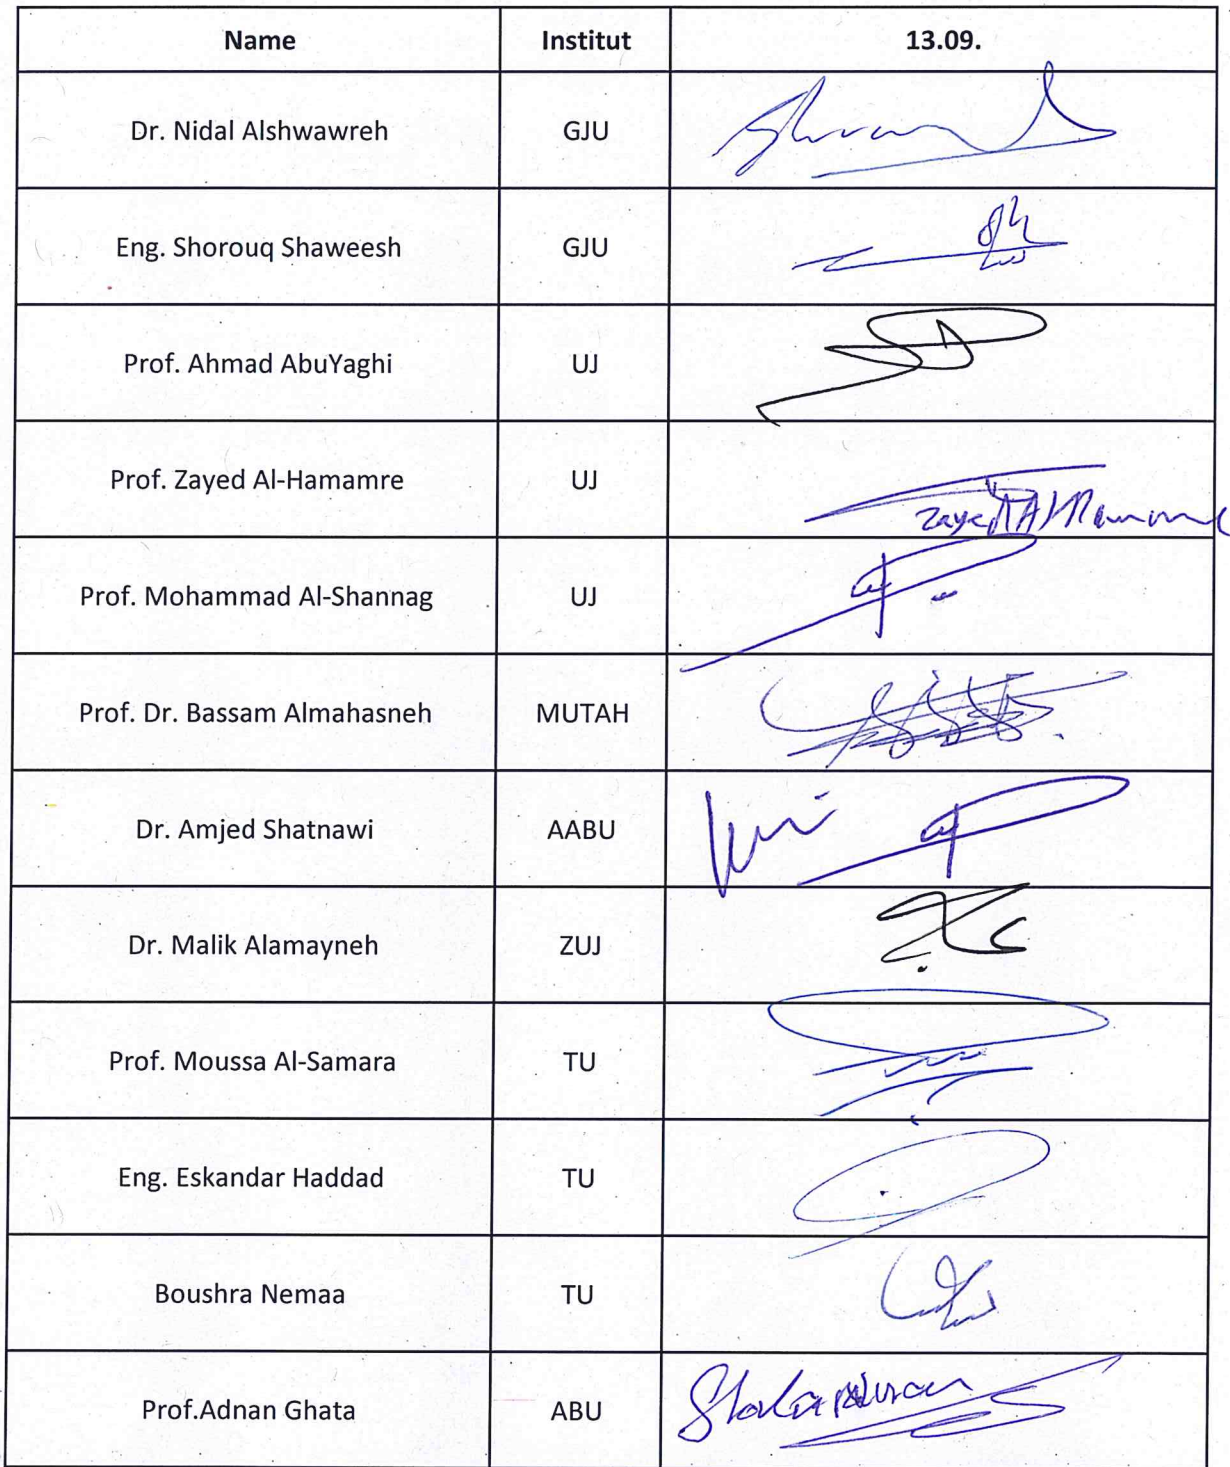 Name Institut 13.09.
Dr. Nidal Alshwawreh GJU
Eng. Shorouq Shaweesh GJU
Prof. Ahmad AbuYaghi UJ
Prof. Zayed Al-Hamamre UJ
Prof. Mohammad Al-Shannag UJ
Prof. Dr. Bassam Almahasneh MUTAH
Dr. Amjed Shatnawi AABU
Dr. Malik Alamayneh ZUJ
Prof. Moussa Al-Samara TU
Eng. Eskandar Haddad TU
Boushra Nemaa TU
Prof.Adnan Ghata ABU